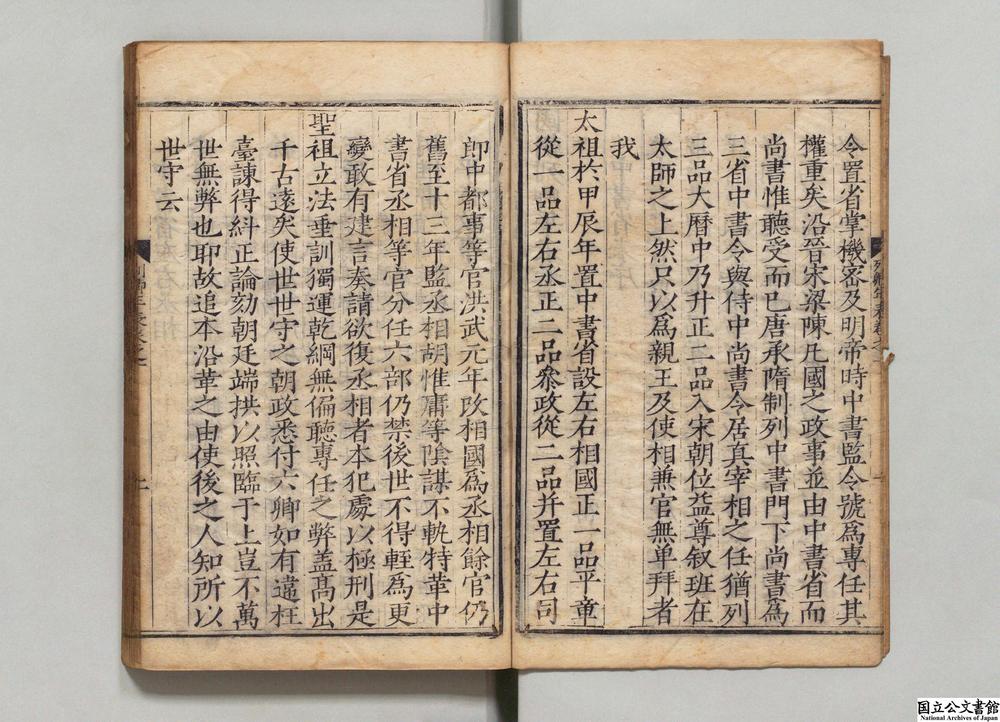 令置省掌機密及明帝時中書監令號爲專任其
權重矣沿晉宋梁陳凡國之政事並由中書省而
尚書惟聽受而已唐承隋制列中書門下尚書爲
三省中書令與侍中尚書令居真宰相之任猶列
三品大曆中乃升正二品入宋朝位益尊叙班在
太師之上然只以爲親王及使相兼官無单拜者
我
太祖於甲辰年置中書省設左右相國正一品平章
從一品左右丞正二品叅政從二品并置左右司
郎中都事等官洪武元年改相國爲丞相餘官仍
舊至十三年監丞相胡惟庸等陰謀不軌特革中
書省丞相等官分任六部仍禁後世不得輊爲更
變敢有建言奏請欲復丞相者本犯處以極刑是
聖祖立法垂訓獨運乾綱無偏聽專任之弊盖髙出
千古遠矣使世世守之朝政悉付六卿如有違枉
臺諫得糾正論劾朝廷端拱以照臨于上豈不萬
世無弊也耶故追本沿革之由使後之人知所以
世守云
国立公文書館
National Archives of Japan